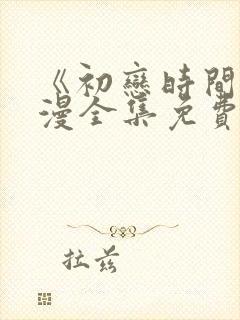 《初戀時間
漫全集免費
拉兹